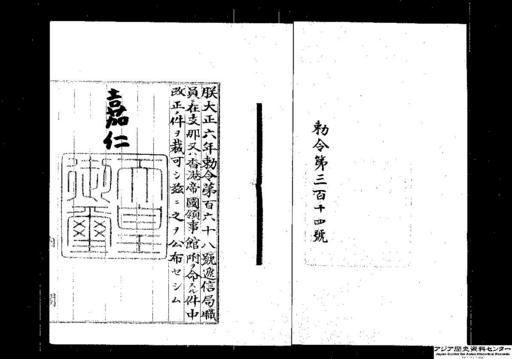 勅令第三百十四號
朕大正六年勅令第百六十八號遞信局職
員ヲ在支那又ハ香港帝國領事館附ヲ命スル件中
改正ノ件ヲ裁可シ玆ニ之ヲ公布セシム
嘉仁
天皇
御璽
内
閣
アジア歴史資料センター
Japan Center for Asian Historical Records